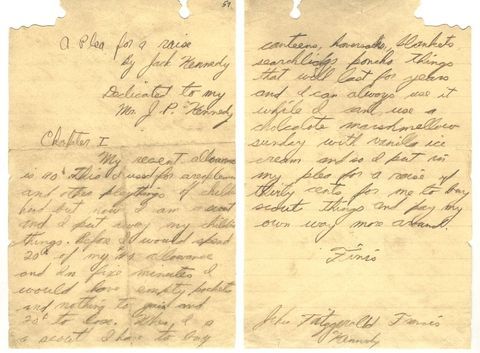 59
A Plea for a raise
by Jack Kennedy
Dedicated to my
Mr. J. P. Kennedy
Chapter I
My recent allowance
is 40¢. This I used for areoplanes
and other playthings of child-
hood but now I am a scout
and I put away my childish
things. Before I would spend
20¢ of my 40¢ allowance
and In five minutes I
would have empty pockets
and nothing to gain and
20¢ to lose. When I a
a scout I have to buy
canteens, haversacks, blankets
searchlidgs poncho things
that will last for years
and I can always use it
while I cant use a
cholcolate marshmellow
sunday with vanilla ice
cream and so I put in
my plea for a raise of
thirty cents for me to buy
scout things and pay my
own way more around.
Finis
John Fitzgerald Francis
Kennedy